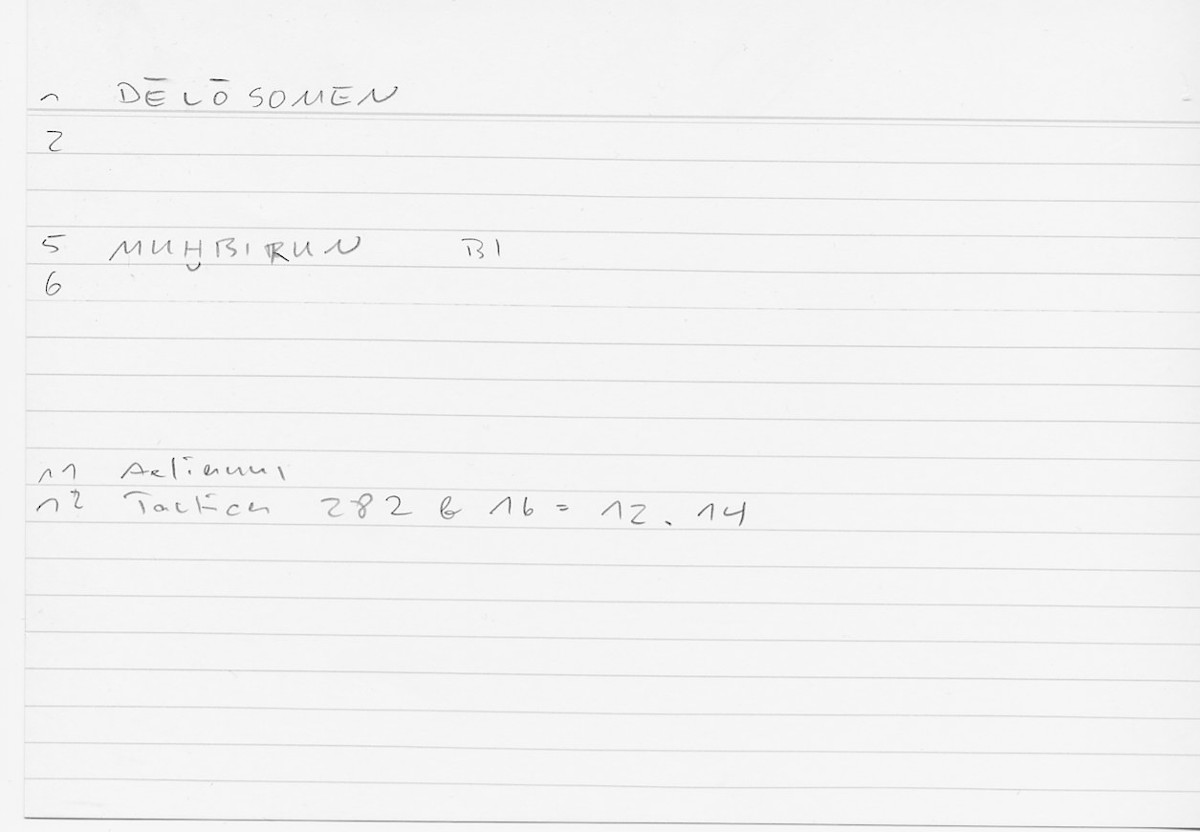 1 DĒLŌSOMEN
2
5 MUḪBIRUN BI
6
11 Aelianus
12 Tactica 282 b 16 = 12. 14